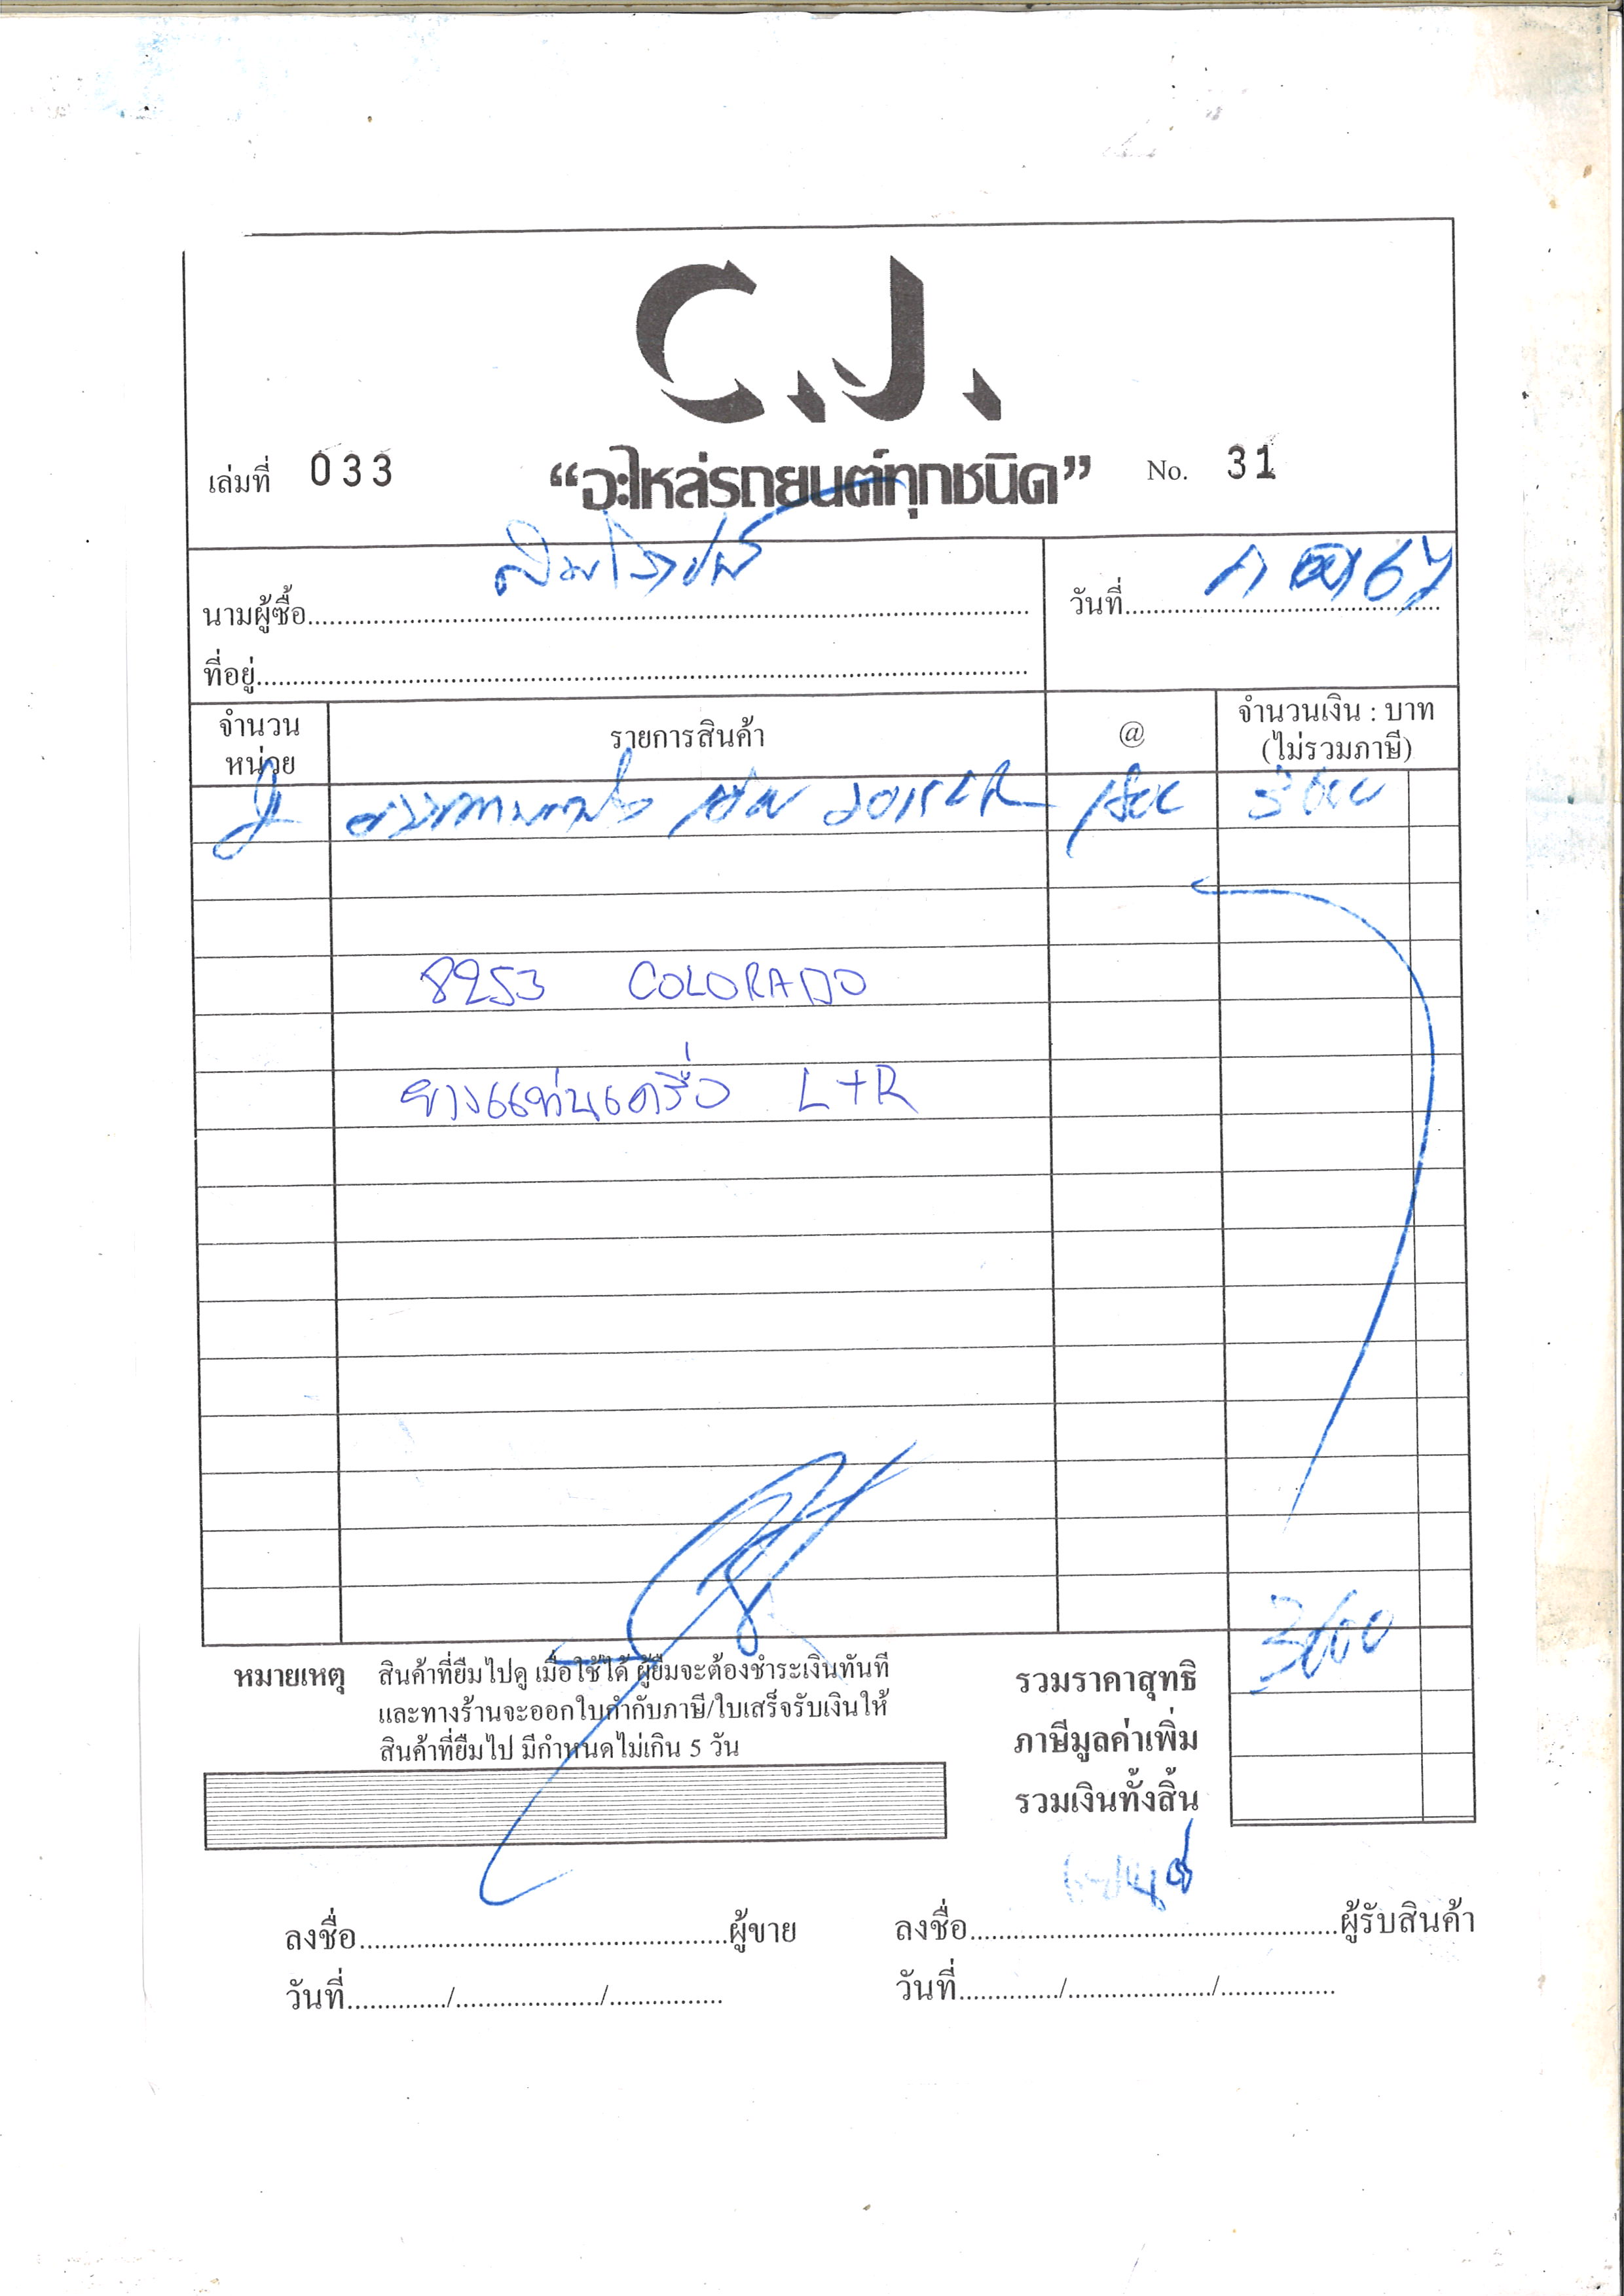 C.J.
เล่มที่ 033 “อะไหล่รถยนต์ทุกชนิด” No. 31
นามผู้ซื้อ วันที่ 67
ที่อยู่
จำนวน หน่วย รายการสินค้า @ จำนวนเงิน : บาท (ไม่รวมภาษี)
2015 LR 1800 3600
8253 COLORADO
ยางแท่นเครื่อง L+R
3600
หมายเหตุ สินค้าที่ยืมไปดู เมื่อใช้ได้ ผู้ยืมจะต้องชำระเงินทันที รวมราคาสุทธิ
และทางร้านจะออกใบกำกับภาษี/ใบเสร็จรับเงินให้ ภาษีมูลค่าเพิ่ม
สินค้าที่ยืมไป มีกำหนดไม่เกิน 5 วัน
รวมเงินทั้งสิ้น
ลงชื่อ ผู้ขาย ลงชื่อ ผู้รับสินค้า
วันที่ / / วันที่ / /